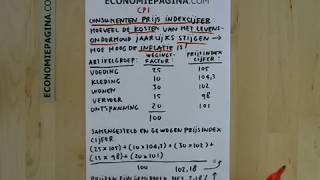 ECONOMIEPAGINA.COM
CPI
CONSUMENTEN PRIJS INDEXCIJFER:
HOEVEEL DE KOSTEN VAN HET LEVENS-
ONDERHOUD JAARLIJKS STIJGEN →
HOE HOOG DE INFLATIE IS!
ARTIKELGROEP: WEGINGS- PRIJSINDEX
FACTOR: CIJFER:
VOEDING 25 105
KLEDING 10 104,3
WONEN 30 102
VERVOER 15 98
ONTSPANNING 20 101
100
SAMENGESTELD EN GEWOGEN PRIJSINDEX
CIJFER
(25 x 105) + (10 x 104,3) + (30 x 102) +
(15 x 98) + (20 x 101)
100 = 102,18
PRIJZEN ZIJN GEMIDDELD MET 2,18% ↑